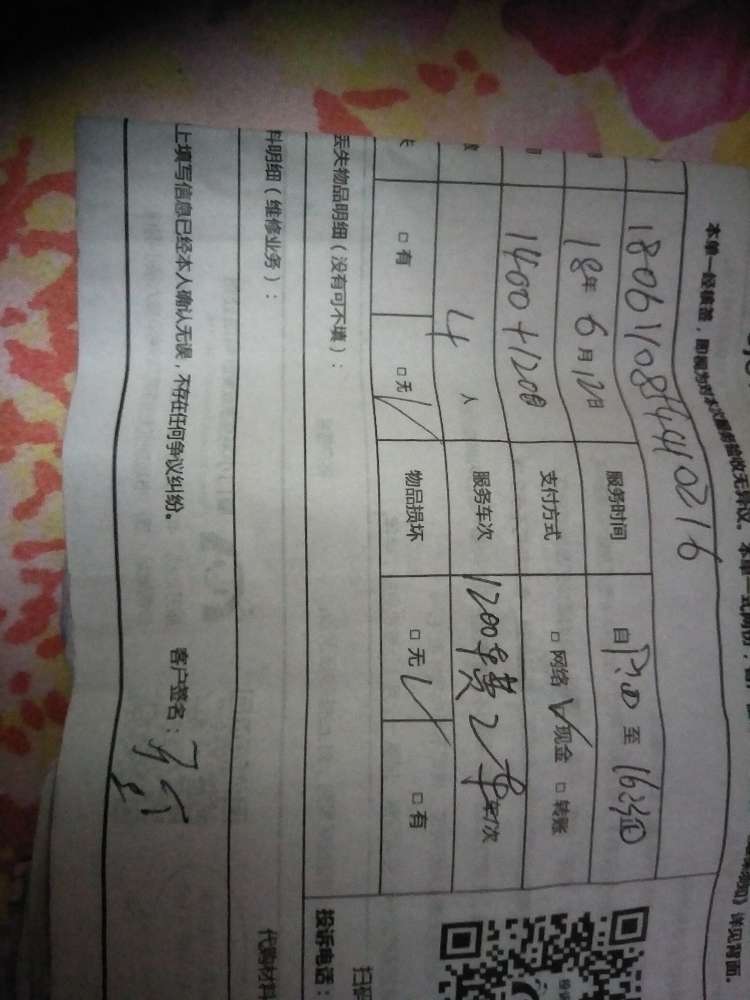 本单一经核签，即视为对本次服务验收无异议。本单一式两份，
》详见背面.
1806110854440216
18年6月12日 服务时间 自 至
1400+1200 支付方式 □网络 √现金 □转账
4人 服务车次 1200车费2车 次
□有 □无√ 物品损坏 □无√ □有
丢失物品明细（没有可不填）：
料明细（维修业务）：
上填写信息已经本人确认无误，不存在任何争议纠纷。 客户签名：
扫码
投诉电话：
代购材料